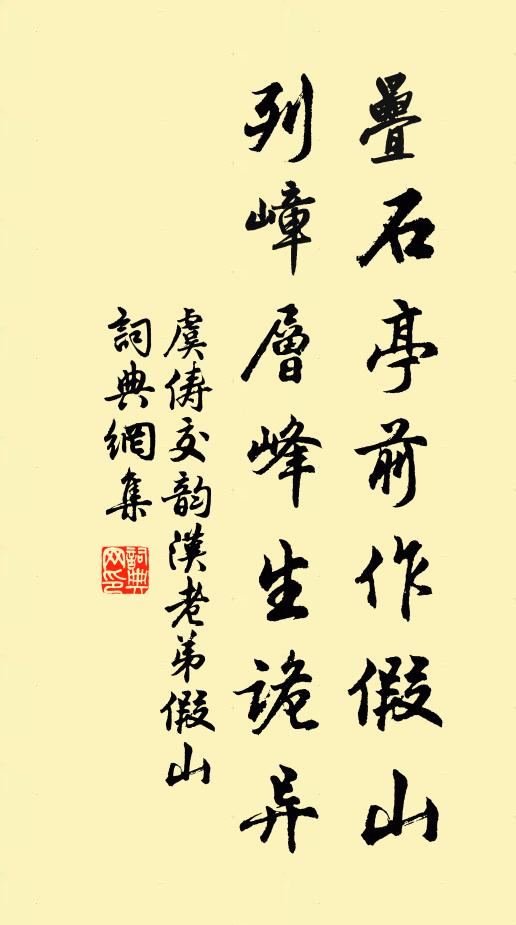 疊石亭前作假山
列嶂層峰生詭异
虞俦交韵漢老弟假山
詞典網集
詞典網印